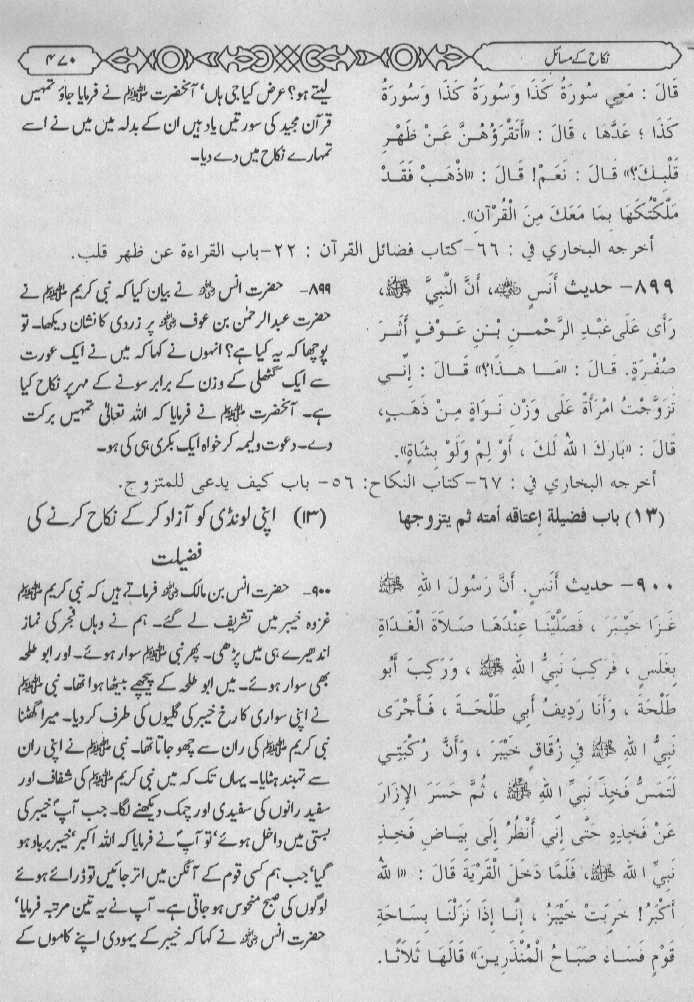 نکاح کے مسائل
۴۷۰
قَالَ : مَعِي سُورَةُ كَذَا وَسُورَةُ كَذَا وَسُورَةُ
كَذَا ؛ عَدَّهَا ، قَالَ : «أَتَقْرَؤُهُنَّ عَنْ ظَهْرِ
قَلْبِكَ؟» قَالَ : نَعَمْ! قَالَ : «اذْهَبْ فَقَدْ
مَلَّكْتُكَهَا بِمَا مَعَكَ مِنَ الْقُرْآنِ».
لیتے ہو؟ عرض کیا جی ہاں‘ آنحضرت ﷺ نے فرمایا جاؤ تمہیں
قرآن مجید کی سورتیں یاد ہیں ان کے بدلہ میں میں نے اسے
تمہارے نکاح میں دے دیا۔
أخرجه البخاري في : ٦٦-كتاب فضائل القرآن : ٢٢-باب القراءة عن ظهر قلب.
٨٩٩- حديث أَنَسٍ ﷺ، أَنَّ النَّبِيَّ ﷺ،
رَأَى عَلَى عَبْدِ الرَّحْمنِ بْنِ عَوْفٍ أَثَرَ
صُفْرَةٍ. قَالَ : «مَا هذَا؟» قَالَ : إِنِّي
تَزَوَّجْتُ امْرَأَةً عَلَى وَزْنِ نَوَاةٍ مِنْ ذَهَبٍ،
قَالَ : «بَارَكَ اللهُ لَكَ ، أَوْ لِمْ وَلَوْ بِشَاةٍ».
۸۹۹- حضرت انس رضی اللہ عنہ نے بیان کیا کہ نبی کریم ﷺ نے
حضرت عبدالرحمٰن بن عوف رضی اللہ عنہ پر زردی کا نشان دیکھا۔ تو
پوچھا کہ یہ کیا ہے؟ انہوں نے کہا کہ میں نے ایک عورت
سے ایک گٹھلی کے وزن کے برابر سونے کے مہر پر نکاح کیا
ہے۔ آنحضرت ﷺ نے فرمایا کہ اللہ تعالیٰ تمہیں برکت
دے۔ دعوت ولیمہ کر خواہ ایک بکری ہی کی ہو۔
أخرجه البخاري في : ٦٧-كتاب النكاح: ٥٦- باب كيف يدعى للمتزوج.
(١٣) باب فضيلة إعتاقه أمته ثم يتزوجها
(۱۳) اپنی لونڈی کو آزاد کر کے نکاح کرنے کی
فضیلت
٩٠٠- حديث أَنَسٍ. أَنَّ رَسُولَ اللهِ ﷺ
غَزَا خَيْبَرَ ، فَصَلَّيْنَا عِنْدَهَا صَلاَةَ الْغَدَاةِ
بِغَلَسٍ ، فَرَكِبَ نَبِيُّ اللهِ ﷺ ، وَرَكِبَ أَبُو
طَلْحَةَ ، وَأَنَا رَدِيفُ أَبِي طَلْحَةَ ، فَأَجْرَى
نَبِيُّ اللهِ ﷺ فِي زُقَاقِ خَيْبَرَ ، وَأَنَّ رُكْبَتِي
لَتَمَسُّ فَخِذَ نَبِيِّ اللهِ ﷺ ، ثُمَّ حَسَرَ الإِزَارَ
عَنْ فَخِذِهِ حَتَّى إِنِّي أَنْظُرُ إِلَى بَيَاضِ فَخِذِ
نَبِيِّ اللهِ ﷺ، فَلَمَّا دَخَلَ الْقَرْيَةَ قَالَ : «اللهُ
أَكْبَرُ! خَرِبَتْ خَيْبَرُ ، إِنَّا إِذَا نَزَلْنَا بِسَاحَةِ
قَوْمٍ فَسَاءَ صَبَاحُ الْمُنْذَرِينَ» قَالَهَا ثَلاَثًا.
۹۰۰- حضرت انس بن مالک رضی اللہ عنہ فرماتے ہیں کہ نبی کریم ﷺ
غزوہ خیبر میں تشریف لے گئے۔ ہم نے وہاں فجر کی نماز
اندھیرے ہی میں پڑھی۔ پھر نبی ﷺ سوار ہوئے۔ اور ابو طلحہ
بھی سوار ہوئے۔ میں ابو طلحہ کے پیچھے بیٹھا ہوا تھا۔ نبی ﷺ
نے اپنی سواری کا رخ خیبر کی گلیوں کی طرف کر دیا۔ میرا گھٹنا
نبی کریم ﷺ کی ران سے چھو جاتا تھا۔ نبی ﷺ نے اپنی ران
سے تہبند ہٹایا۔ یہاں تک کہ میں نبی کریم ﷺ کی شفاف اور
سفید رانوں کی سفیدی اور چمک دیکھنے لگا۔ جب آپؐ خیبر کی
بستی میں داخل ہوئے‘ تو آپؐ نے فرمایا کہ اللہ اکبر‘ خیبر برباد ہو
گیا‘ جب ہم کسی قوم کے آنگن میں اتر جائیں تو ڈرائے ہوئے
لوگوں کی صبح منحوس ہو جاتی ہے۔ آپ نے یہ تین مرتبہ فرمایا‘
حضرت انس رضی اللہ عنہ نے کہا کہ خیبر کے یہودی اپنے کاموں کے